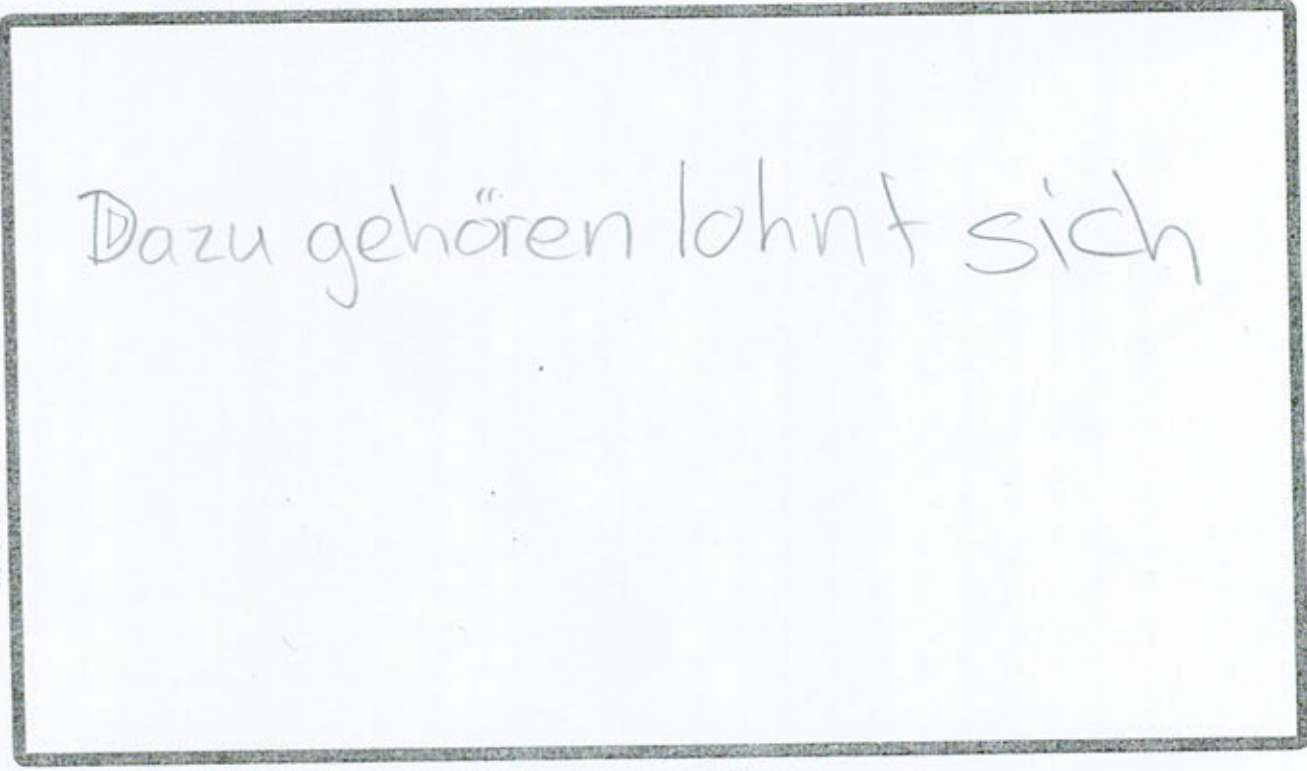 Dazu gehören lohnt sich